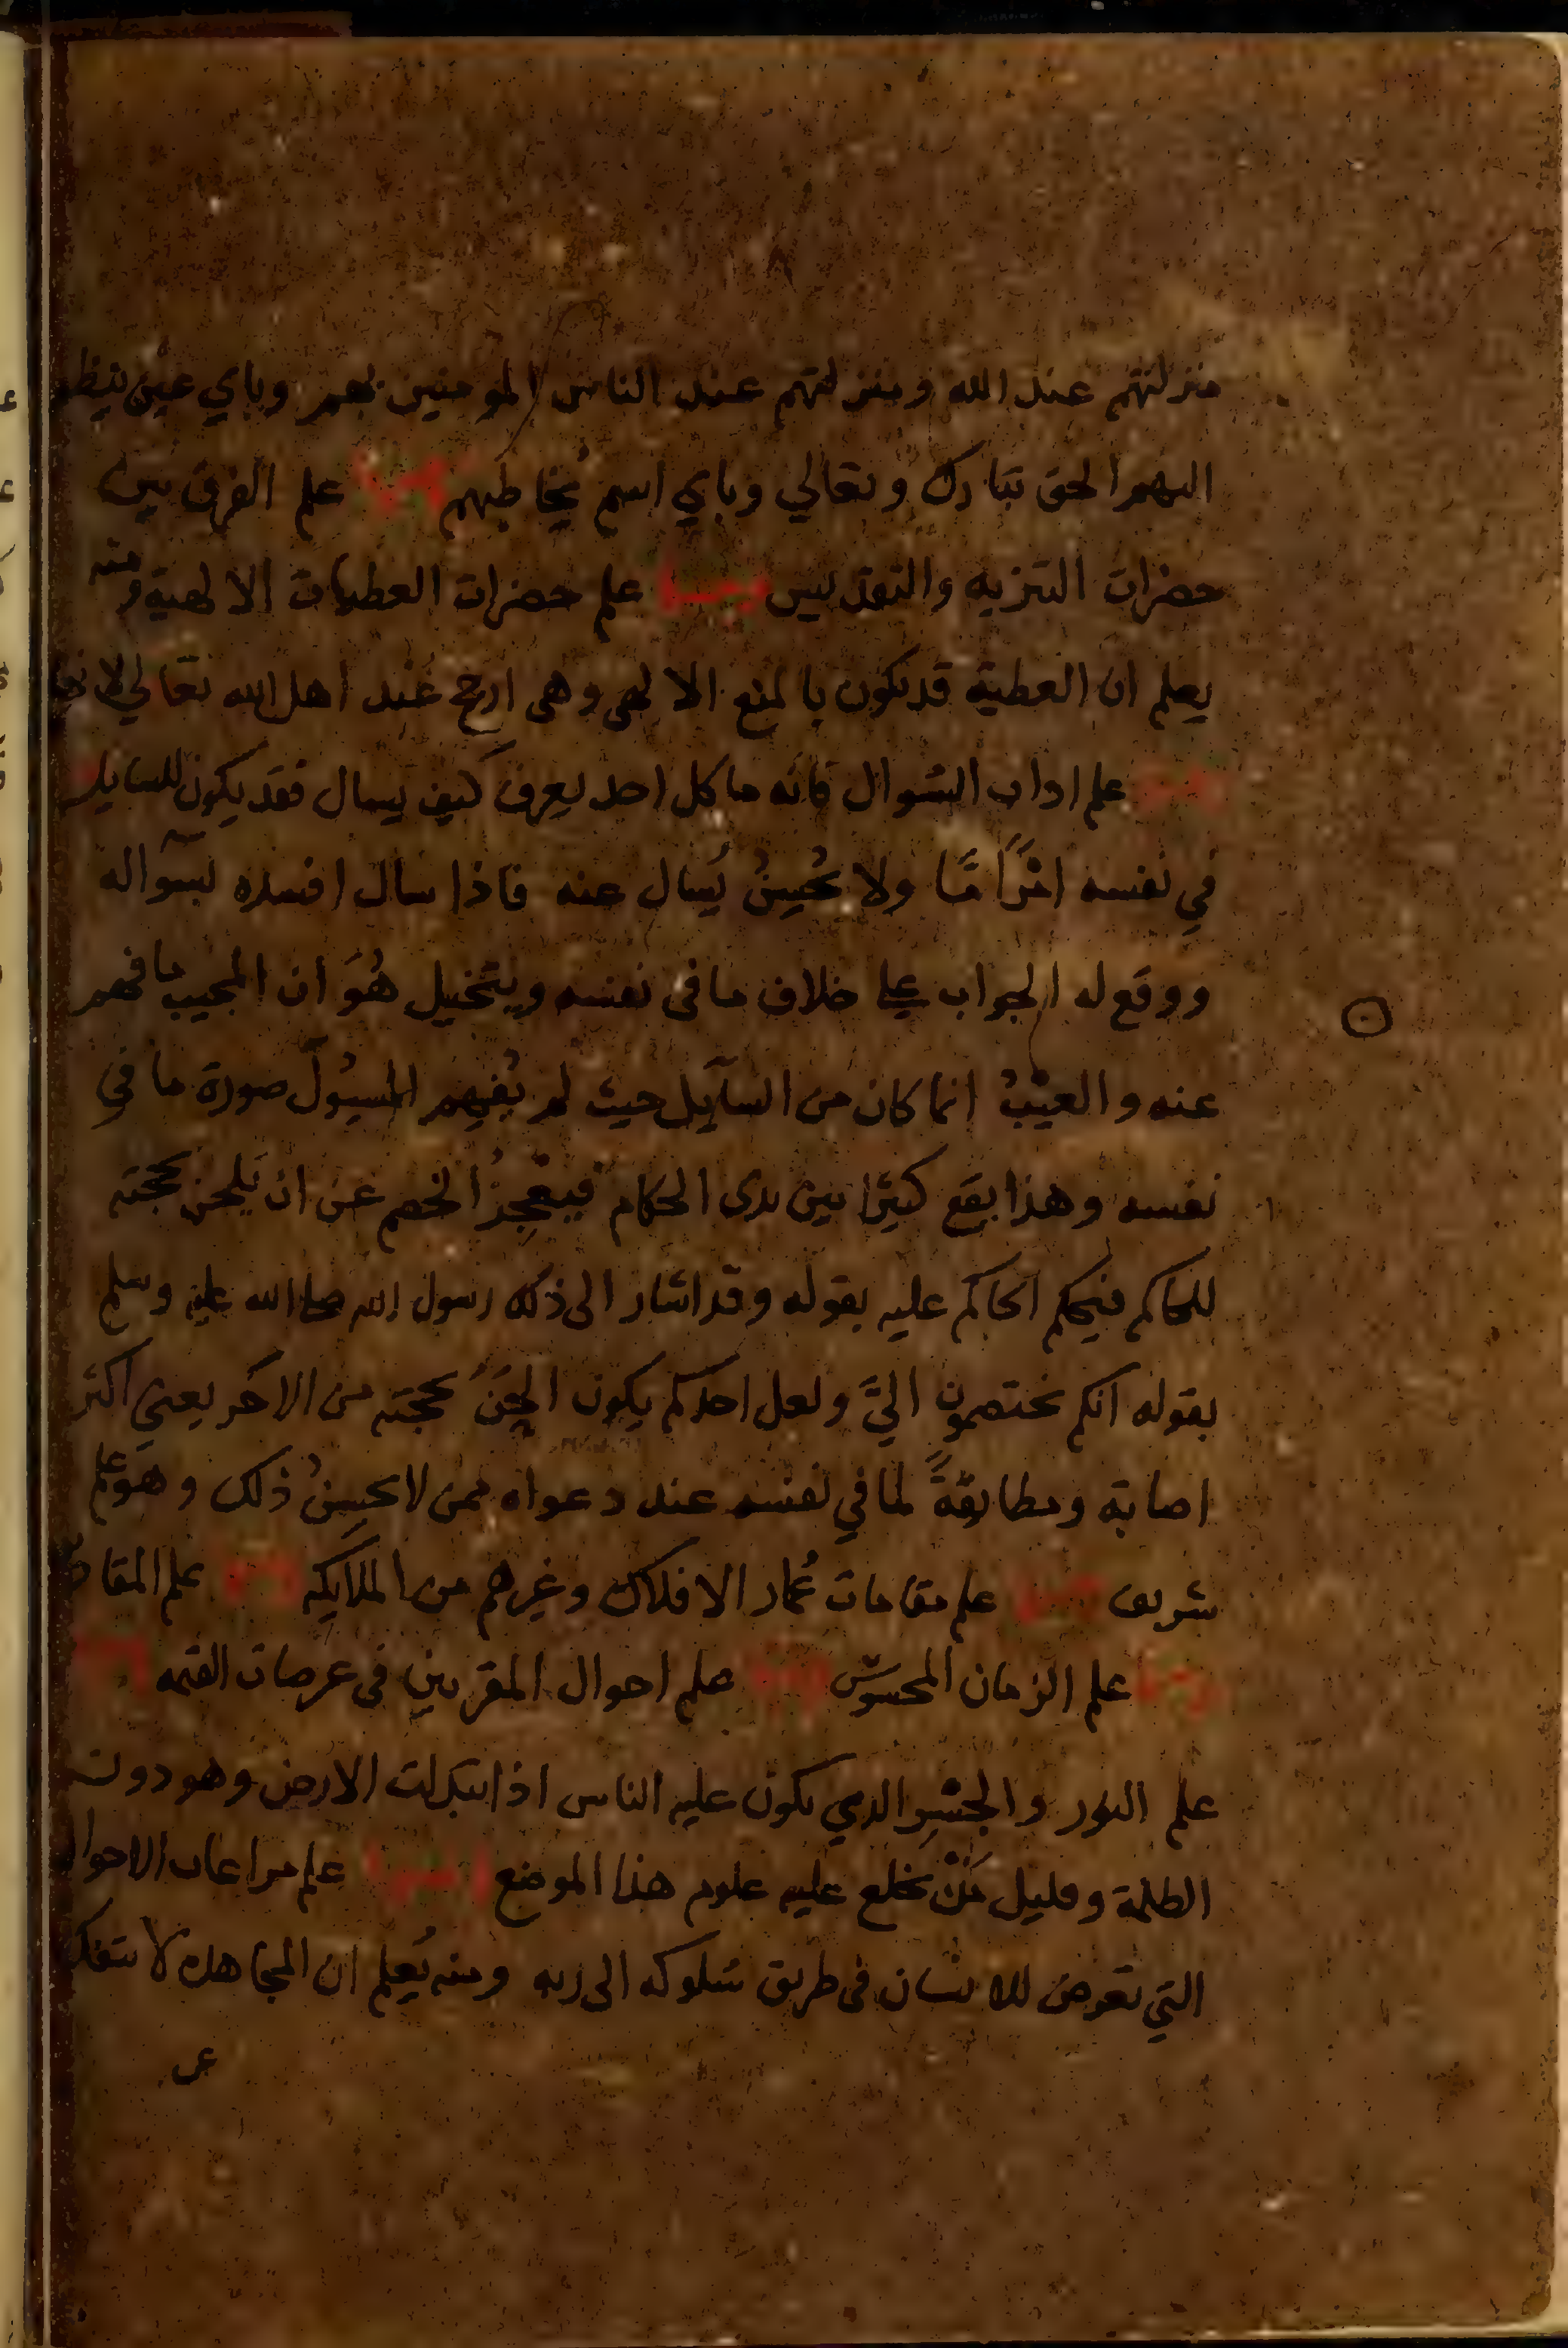 منزلتهم عند الله ومنزلتهم عند الناس المومنين بهم وباي عين ينظر
اليهم الحق تبارك وتعالي وباي اسم يُخاطبهم ومنها علم الفرق بين
حضرات التنزيه والتقديس ومنها علم حضرات العطيات الالهية ومنه
يعلم ان العطية قد تكون بالمنع الالهي وهي ارجح عند اهل الله تعالي
ومنها علم اداب السُوال فانه ما كل احد يعرف كيف يسال فقد يكون للسايل
في نفسه امرًا مَّا ولا يُحسِنُ يُسال عنه فاذا سال افسده بسواله
ووقع له الجواب علي خلاف ما في نفسه ويتخيل هُوَ ان المجيب ما فهم
عنه والعيْبُ انما كان من السآيل حيث لم يُفهِم المسيُول صورة ما في
نفسه وهذا يقع كثيرًا بين يدي الحكام فيعْجِزُ الخصم عن ان يَلحن بحجته
للحاكم فيحكم الحاكم عليه بقوله وقد اشار الى ذلك رسول الله صلى الله عليه وسلم
بقوله انكم تختصمون اليَّ ولعل احدكم يكون الحَنَ بحجته من الاخر يعني اكثر
اصابة ومطابقةً لما في نفسه عند دعواه ممن لا يحسِنُ ذلك وهو علم
شريف ومنها علم مقامات عُمار الافلاك وغيرهم من الملايكه ومنها علم
ومنها علم الزمان المحسوس ومنها علم احوال المقربين في عرصات القيمه ومنها
علم النور والجسْرِ الدي يكون عليه الناس اذا تبدلت الارض وهو دون
الظلمة وقليل مَنْ يخلع عليه علوم هذا الموضع ومنها علم مراعات الاحوال
التي تعرض للانسان في طريق سُلوكه الى ربه ومنه يُعلم ان المجاهده لا تنفك
عن